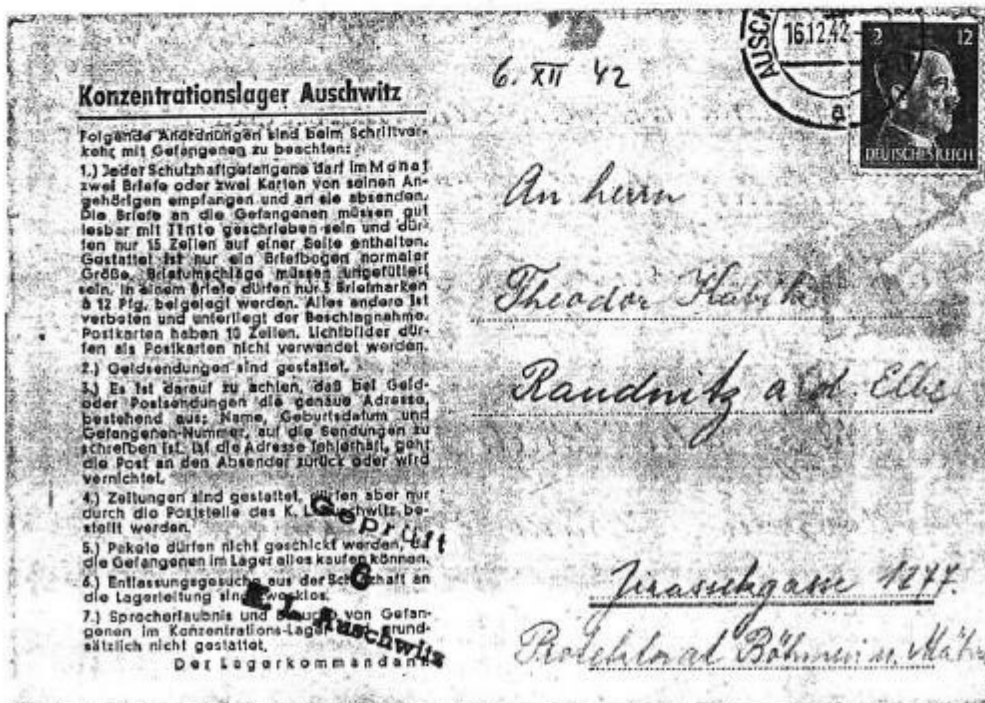 AUSC
16.12.42
a
2 12
DEUTSCHES REICH
6. XII 42
Konzentrationslager Auschwitz
Folgende Anordnungen sind beim Schriftver-
kehr mit Gefangenen zu beachten:
1.) Jeder Schutzhaftgefangene darf im Monat
zwei Briefe oder zwei Karten von seinen An-
gehörigen empfangen und an sie absenden.
Die Briefe an die Gefangenen müssen gut
lesbar mit Tinte geschrieben sein und dür-
fen nur 15 Zeilen auf einer Seite enthalten.
Gestattet ist nur ein Briefbogen normaler
Größe. Briefumschläge müssen ungefüttert
sein. In einem Briefe dürfen nur 5 Briefmarken
à 12 Pfg. beigelegt werden. Alles andere ist
verboten und unterliegt der Beschlagnahme.
Postkarten haben 10 Zeilen. Lichtbilder dür-
fen als Postkarten nicht verwendet werden.
2.) Geldsendungen sind gestattet.
3.) Es ist darauf zu achten, daß bei Geld-
oder Postsendungen die genaue Adresse,
bestehend aus: Name, Geburtsdatum und
Gefangenen-Nummer, auf die Sendungen zu
schreiben ist. Ist die Adresse fehlerhaft, geht
die Post an den Absender zurück oder wird
vernichtet.
4.) Zeitungen sind gestattet, dürfen aber nur
durch die Poststelle des K. L. Auschwitz be-
stellt werden.
5.) Pakete dürfen nicht geschickt werden, da
die Gefangenen im Lager alles kaufen können.
6.) Entlassungsgesuche aus der Schutzhaft an
die Lagerleitung sind zwecklos.
7.) Sprecherlaubnis und Besuche von Gefan-
genen im Konzentrations-Lager sind grund-
sätzlich nicht gestattet.
Der Lagerkommandant
Geprüft
6
K.L. Auschwitz
An herrn
Theodor
Raudnitz a/d. Elbe
1277.
Protektorat Böhmen u. Mähr